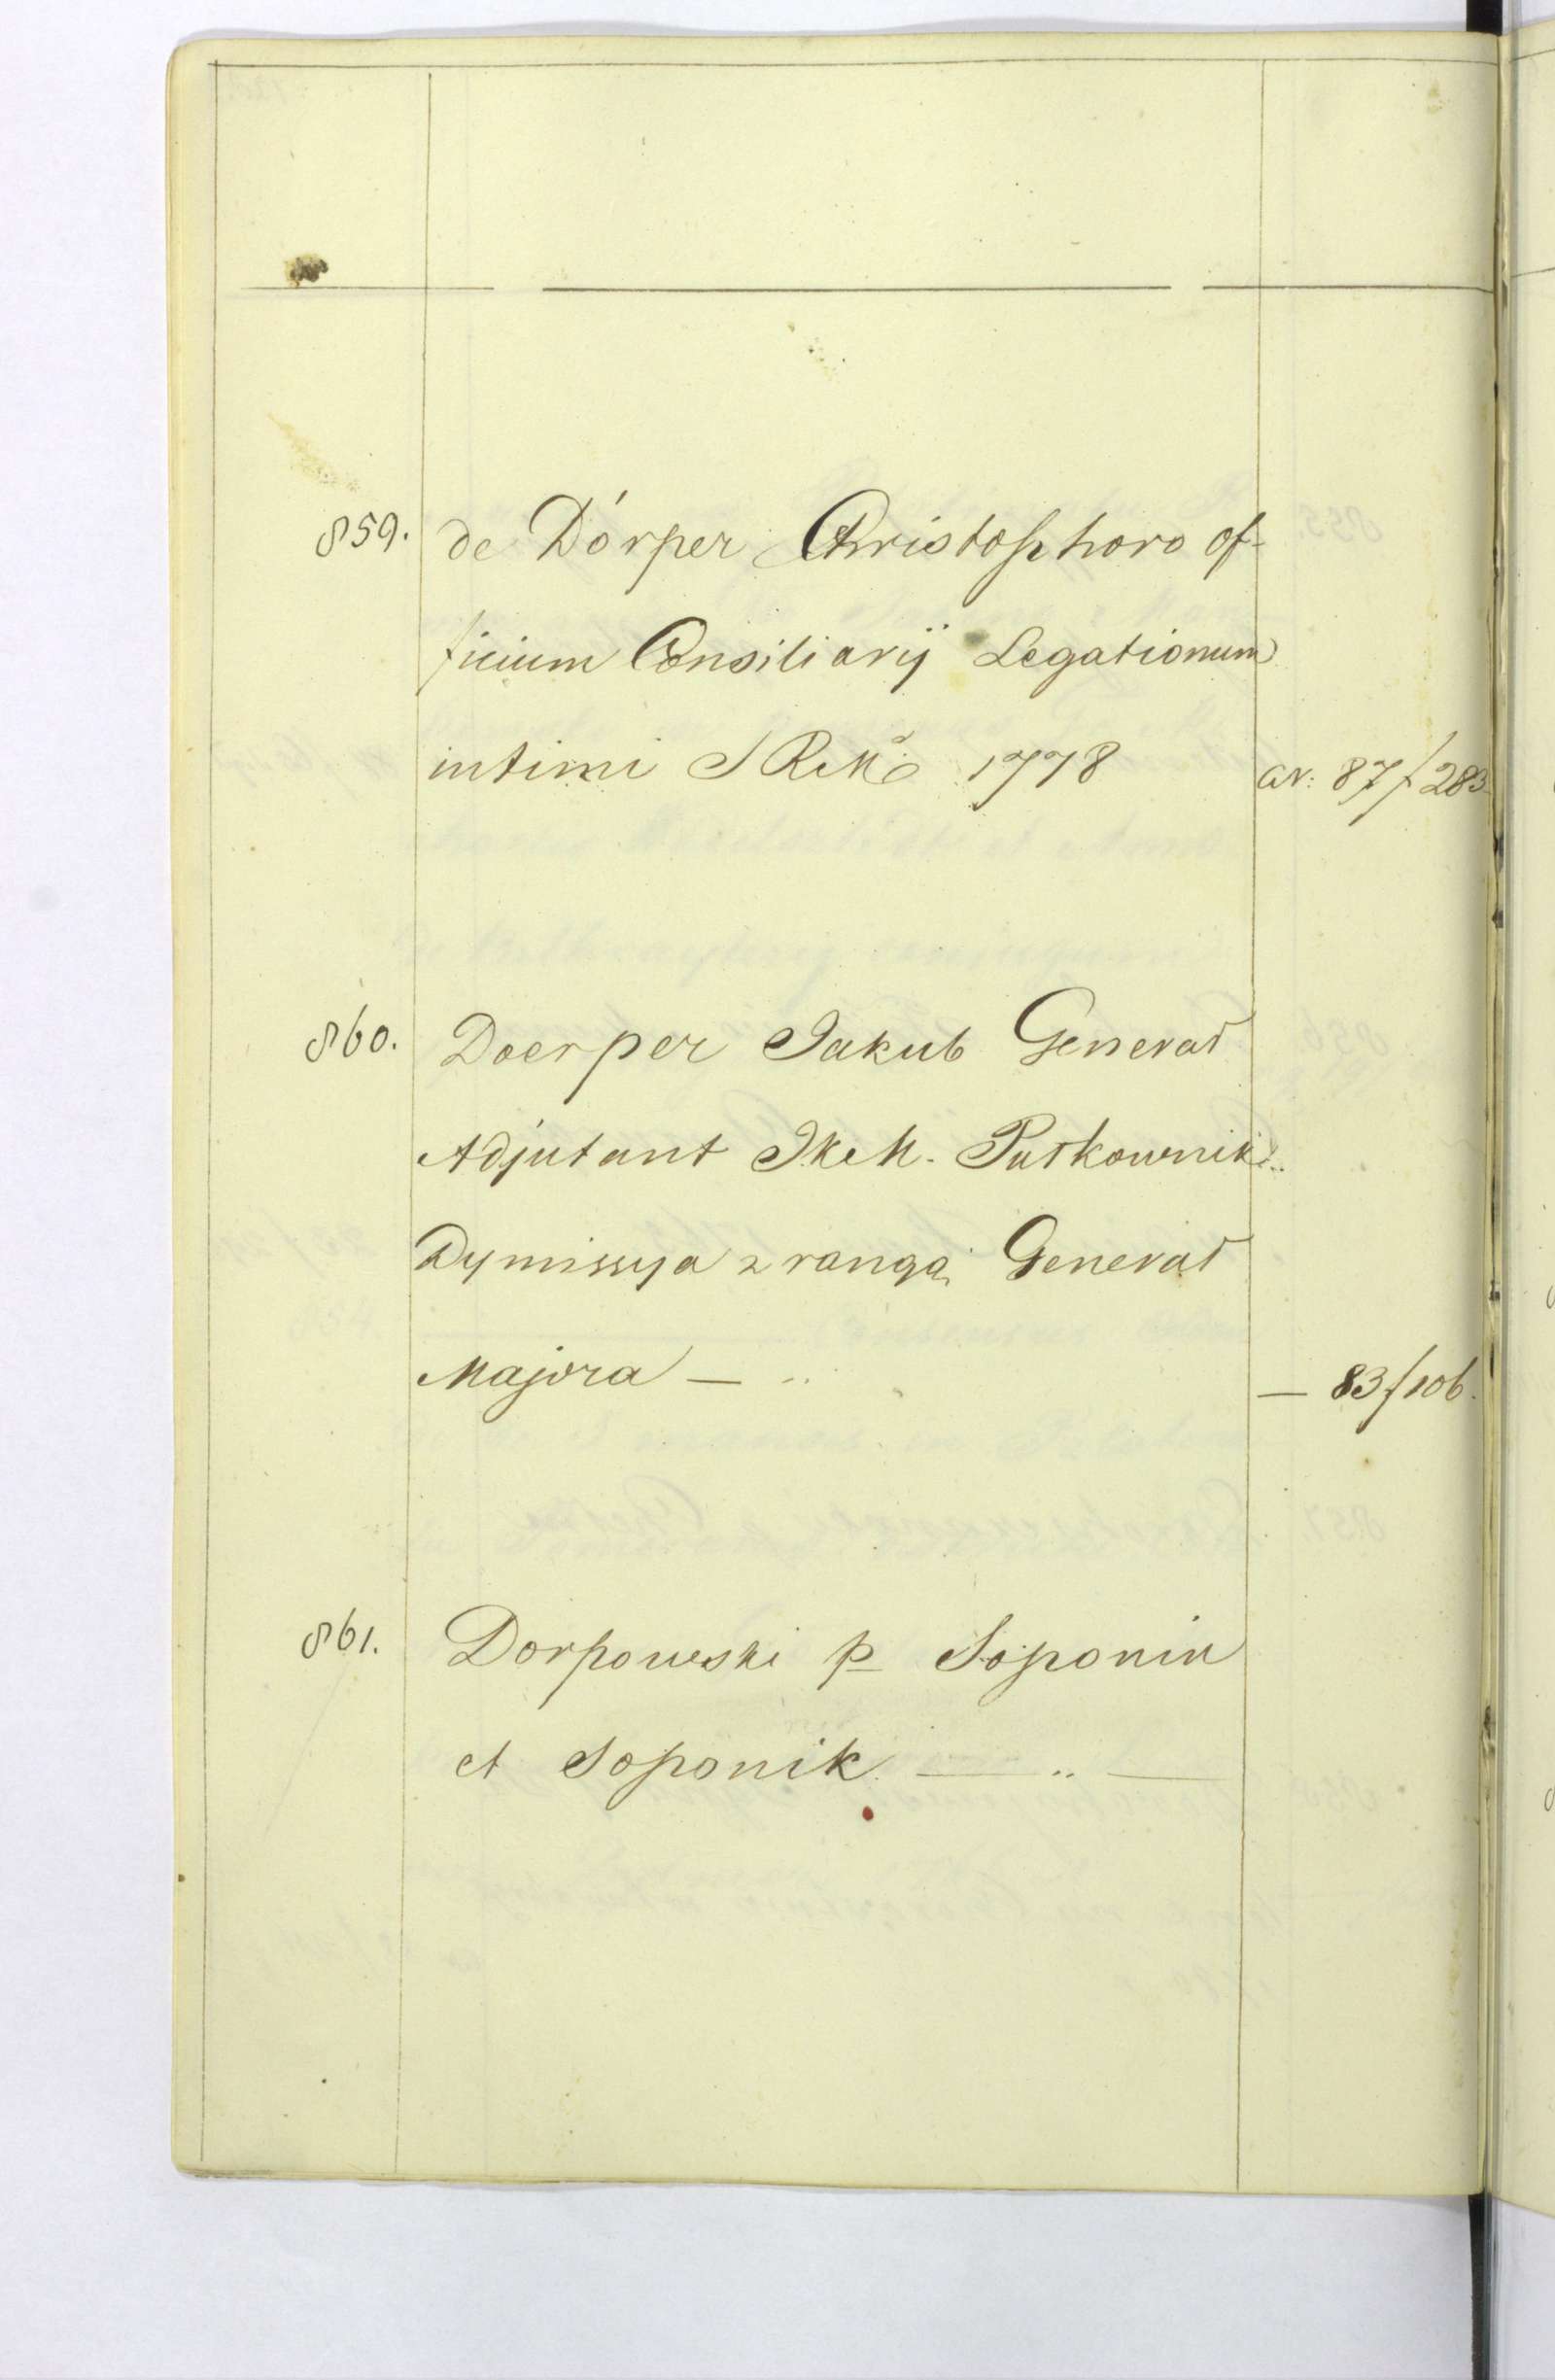 859. de Dórper Christophoro of-
ficium Consiliarij Legationum
intimi S R Mͣ 1778 AN: 87 f 283
860. Doerper Jakub Generał
Adjutant JKcM. Pułkownik..
Dymissya z rangą Generał
Majora — .. — 83 f 106.
861. Dorpowski p Soponin
et Soponik. — .. —